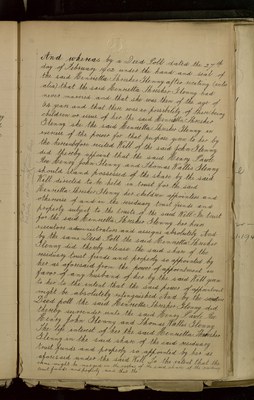 And whereas by a Deed Poll dated the 27th
day of February last under the hand and seal of
the said Henrietta Thresher Glenny after reciting (inter
alia) that the said Henrietta Thresher Glenny had
never married and that she was then of the age of
years and that there was no possibility of there being
children or issue of her the said Henrietta Thresher
Glenny she the said Henrietta Thresher Glenny in
exercise of the power for that purpose given to her by
the hereinbefore recited Will of the said John Glenny
did thereby appoint that the said Henry
Henry John Glenny and Thomas Wallis Glenny
should stand possessed of the share by the said
Will directed to be held in trust for the said
Henrietta Thresher Glenny her children appointees and
otherwise of and in the residuary trust funds and
property subject to the trusts of the said Will In trust
for the said Henrietta Thresher Glenny her heirs
executors administrators and assigns absolutely And
by the same Deed Poll the said Henrietta Thresher
Glenny did thereby release the said share of the
residuary trust funds and property so appointed by
her as aforesaid from the power of appointment in
favor of any husband of her by the said Will given
to her to the intent that the said power of appointment
might be absolutely extinguished And by the same
Deed poll the said Henrietta Thresher Glenny did
thereby surrender unto the said Henry
Henry John Glenny and Thomas Wallis Glenny
the life interest of her the said Henrietta Thresher
Glenny in the said share of the said residuary
trust funds and property so appointed by her as
aforesaid under the said Will To the intent that the
same might be merged in the of the said share of the residuary
trust funds and property and that the